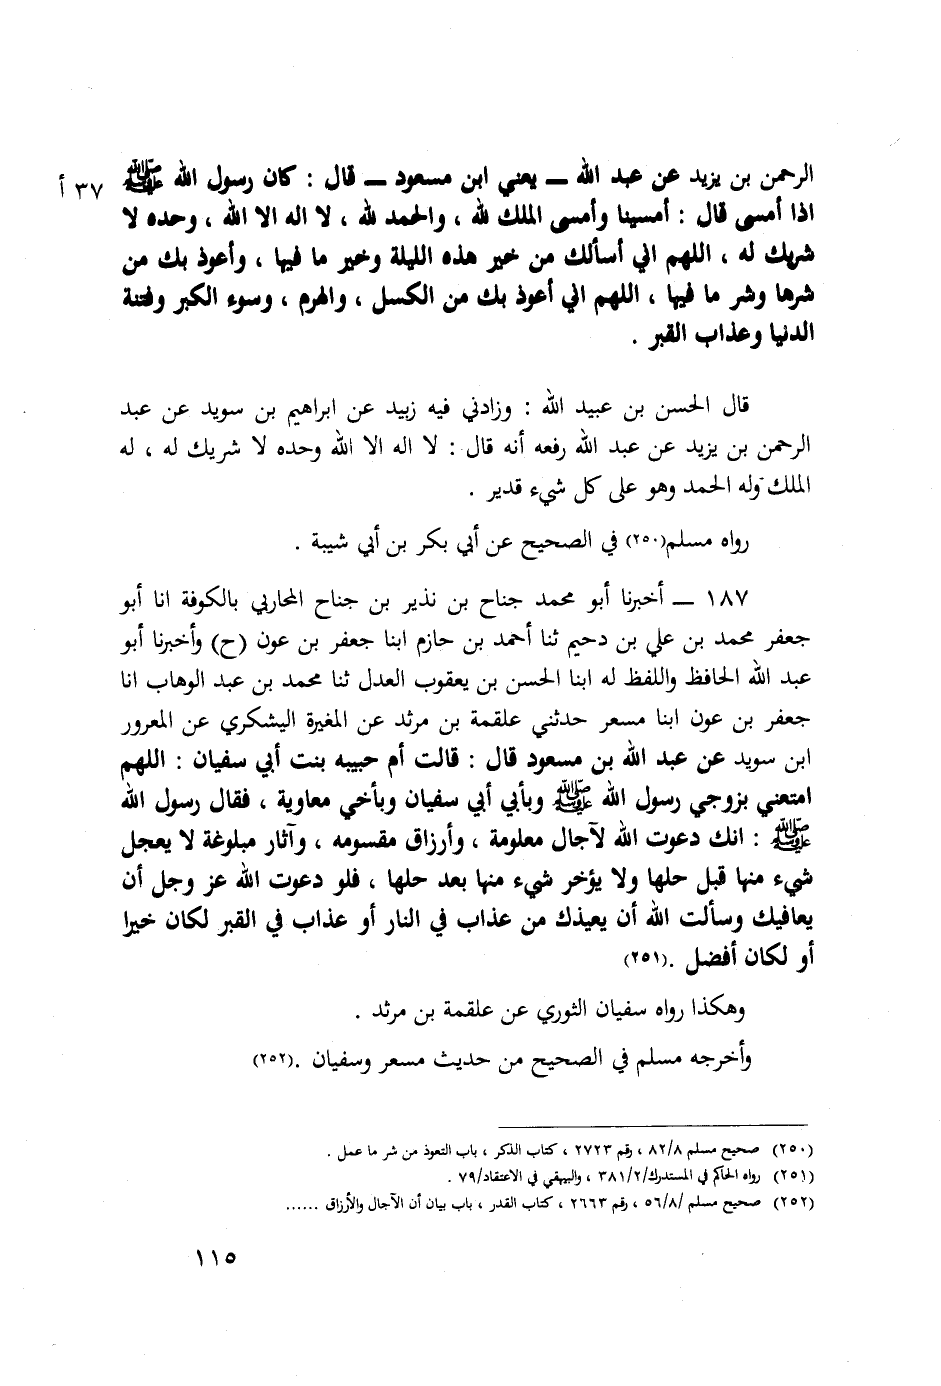 الرحمن بن يزيد عن عبد الله ــ يعني ابن مسعود ــ قال : كان رسول الله ﷺ ٣٧ أ
اذا أمسى قال : أمسينا وأمسى الملك لله ، والحمد لله ، لا اله الا الله ، وحده لا
شريك له ، اللهم اني أسألك من خير هذه الليلة وخير ما فيها ، وأعوذ بك من
شرها وشر ما فيها ، اللهم اني أعوذ بك من الكسل ، والهرم ، وسوء الكبر وفتنة
الدنيا وعذاب القبر .
قال الحسن بن عبيد الله : وزادني فيه زبيد عن ابراهيم بن سويد عن عبد
الرحمن بن يزيد عن عبد الله رفعه أنه قال : لا اله الا الله وحده لا شريك له ، له
الملك وله الحمد وهو على كل شيء قدير .
رواه مسلم(٢٥٠) في الصحيح عن أبي بكر بن أبي شيبة .
١٨٧ ــ أخبرنا أبو محمد جناح بن نذير بن جناح المحاربي بالكوفة انا أبو
جعفر محمد بن علي بن دحيم ثنا أحمد بن حازم ابنا جعفر بن عون (ح) وأخبرنا أبو
عبد الله الحافظ واللفظ له ابنا الحسن بن يعقوب العدل ثنا محمد بن عبد الوهاب انا
جعفر بن عون ابنا مسعر حدثني علقمة بن مرثد عن المغيرة اليشكري عن المعرور
ابن سويد عن عبد الله بن مسعود قال : قالت أم حبيبه بنت أبي سفيان : اللهم
امتعني بزوجي رسول الله ﷺ وبأبي أبي سفيان وبأخي معاوية ، فقال رسول الله
ﷺ : انك دعوت الله لآجال معلومة ، وأرزاق مقسومه ، وآثار مبلوغة لا يعجل
شيء منها قبل حلها ولا يؤخر شيء منها بعد حلها ، فلو دعوت الله عز وجل أن
يعافيك وسألت الله أن يعيذك من عذاب في النار أو عذاب في القبر لكان خيرا
أو لكان أفضل .(٢٥١)
وهكذا رواه سفيان الثوري عن علقمة بن مرثد .
وأخرجه مسلم في الصحيح من حديث مسعر وسفيان .(٢٥٢)
(٢٥٠) صحيح مسلم ٨٢/٨ ، رقم ٢٧٢٣ ، كتاب الذكر ، باب التعوذ من شر ما عمل .
(٢٥١) رواه الحاكم في المستدرك/٣٨١/٢ ، والبيهقي في الاعتقاد/٧٩ .
(٢٥٢) صحيح مسلم /٥٦/٨ ، رقم ٢٦٦٣ ، كتاب القدر ، باب بيان أن الآجال والأرزاق ......
١١٥